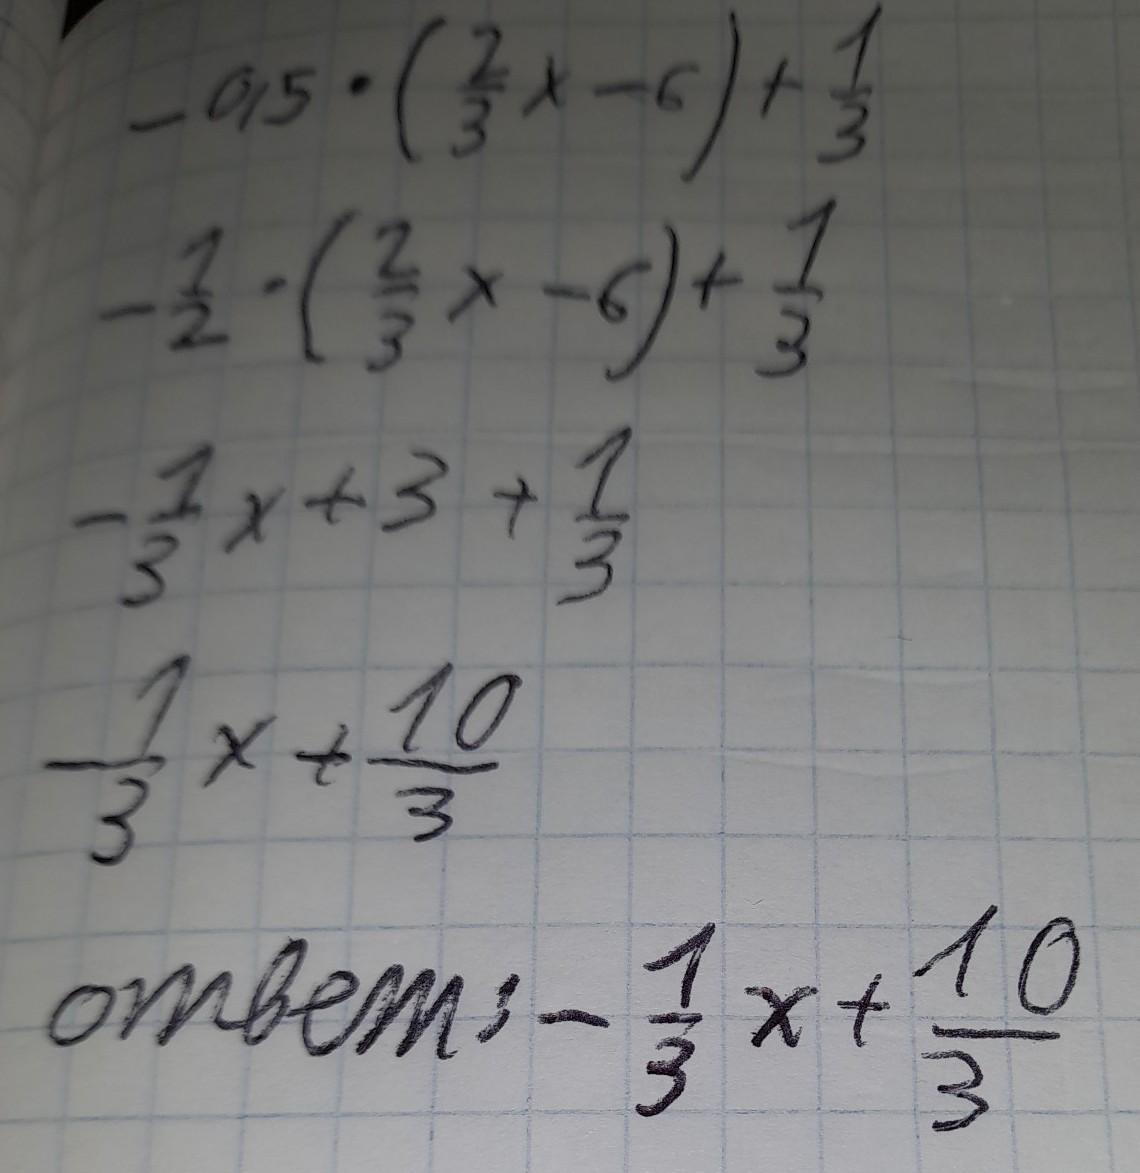 -0,5 · (2/3 x - 6) + 1/3
-1/2 · (2/3 x - 6) + 1/3
-1/3 x + 3 + 1/3
-1/3 x + 10/3
ответ: -1/3 x + 10/3